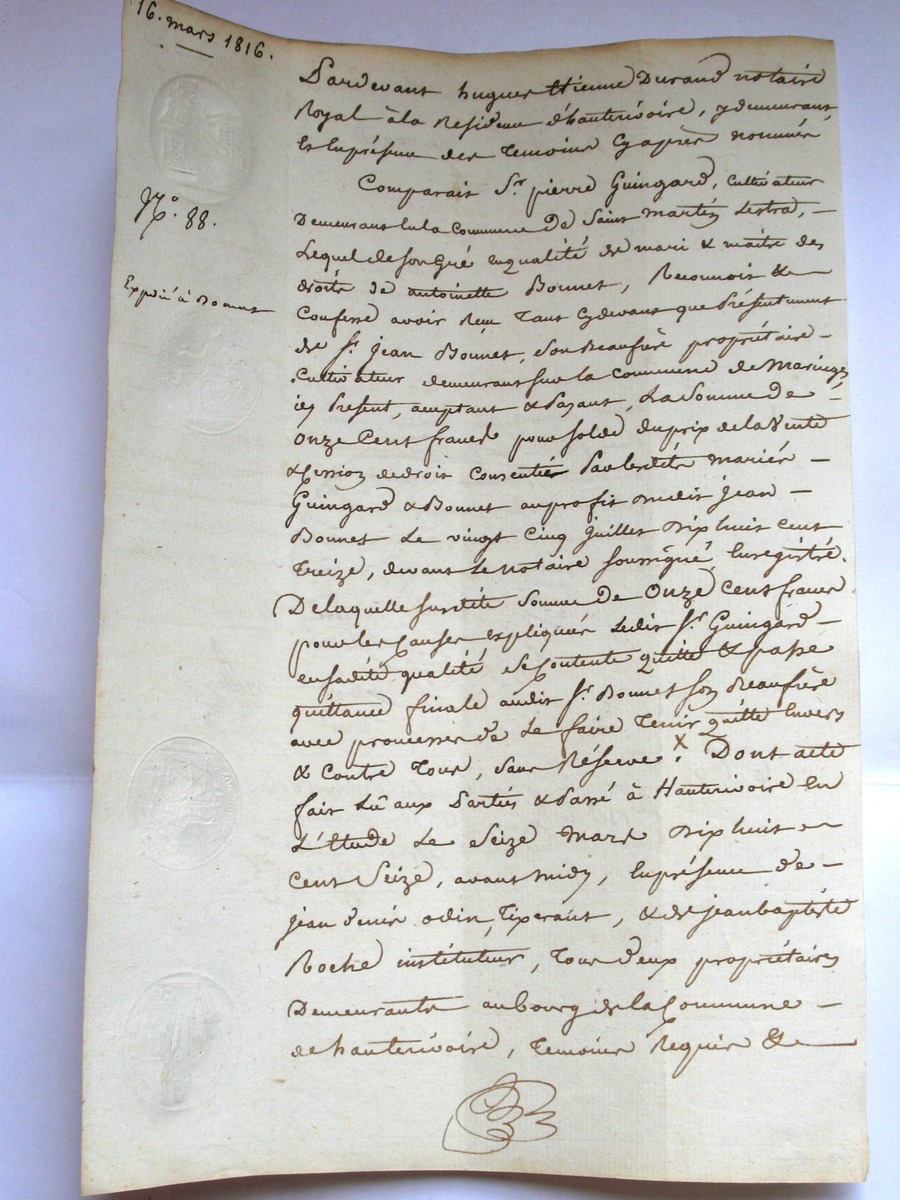 16. mars 1816.
Pardevant hugues Etienne Durand notaire
Royal à la Residence d'hauterivoire, y demeurant
En présence des Temoins Cyaprès nommés
Comparait Sr. pierre Guingard, cultivateur
N.o 88.
Demeurant En la Commune de Saint martin Lestra,
Lequel de son Gré en qualité de mari & maitre des
droits de antoinette Bonnet, Reconnoit &
Expedié à Bonnet
Confesse avoir Reçu Tant Cydevant que Présentement
de Sr. Jean Bonnet, son Beaufrère propriétaire
Cultivateur demeurant sur la commune de Maringes
icy Présent, acceptant & Payant, La somme de
Onze Cent francs pour solde du prix de la Vente
& Cession de droit Consenties Par lesdits mariés
Guingard & Bonnet au profit dudit Jean
Bonnet Le vingt Cinq Juillet Dix huit cent
Treize, devant Le notaire soussigné, Enregistré.
De laquelle susdite Somme de Onze Cent francs
pour les Causes Expliquées Ledit Sr. Guingard
en sadite qualité se Contente quitte & passe
quittance finale audit Sr. Bonnet son Beaufrère
avec promesses de Le faire Tenir quitte Envers
& Contre Tous, sans Réserve. X Dont acte
fait Lû aux Parties & Passé à Hauterivoire En
L'Etude Le Seize Mars Dix huit
Cent Seize, avant midy, En présence de
Jean denis odin, Tixerant, & de jean baptiste
Roche instituteur, Tous deux propriétaires
Demeurants au bourg de la Commune
de hauterivoire, Temoins Requis &